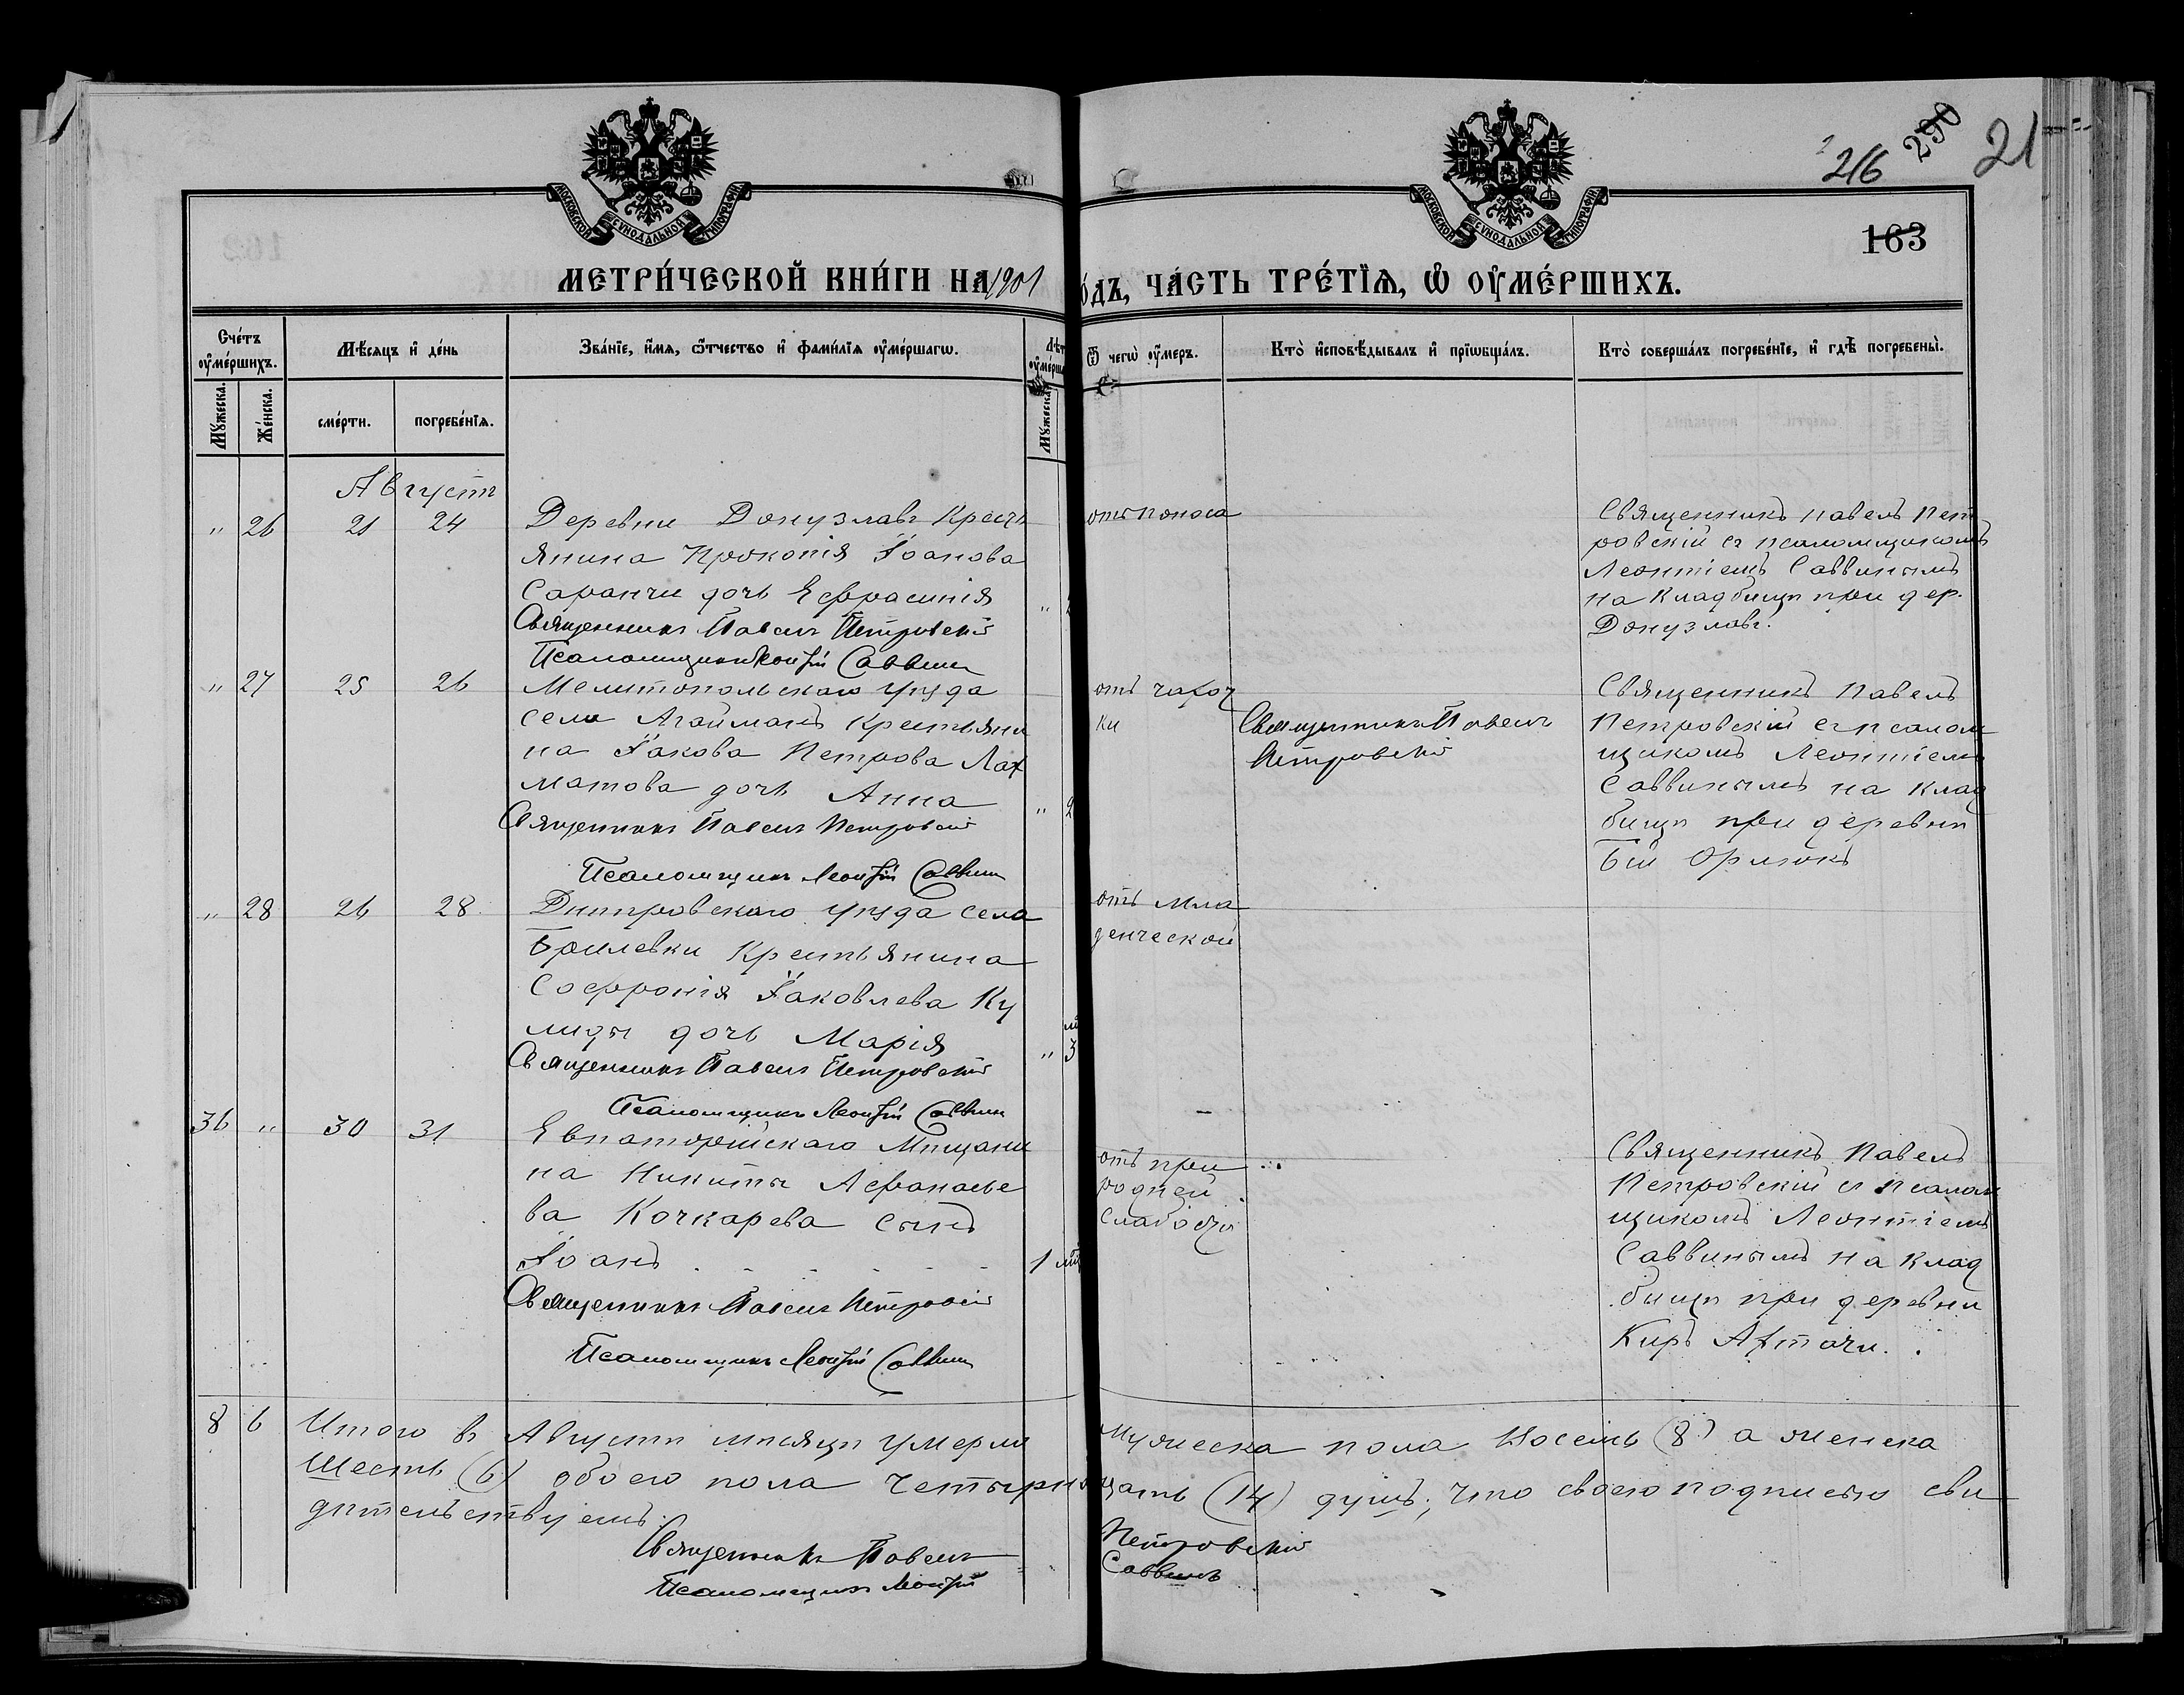 216 290 21
МОСКОВСКОЙ СѴНОДАЛЬНОЙ ТИПОГРАФІИ
МОСКОВСКОЙ СѴНОДАЛЬНОЙ ТИПОГРАФІИ
163
МЕТРИ́ЧЕСКОЙ КНИ́ГИ НА 1901
О́ДЪ, ЧА́СТЬ ТРЕ́ТЇѦ, Ѽ ОУ҆МЕ́РШИХЪ.
Сче́тъ оу҆ме́ршихъ.
Мѣ́сѧцъ и҆ де́нь
Зва́нїе, и҆́мѧ, ѻ҆́тчество и҆ фами́лїѧ оу҆ме́ршагѡ.
Ѿ чегѡ̀ оу҆́меръ.
Кто̀ и҆сповѣ́дывалъ и҆ прїѡбща́лъ.
Кто̀ соверша́лъ погребе́нїе, и҆ гдѣ̀ погребены̀.
Мꙋ́жеска.
Же́нска.
сме́рти.
погребе́нїѧ.
Мꙋ́жеска
Августъ
" 26 21 24
Деревни Донузлавъ Кресть
янина Прокопія Іоанова
Саранчи дочь Ефрасинія "
Священникъ Павелъ Петровскій
Псаломщикъ Леонтій Саввинъ
отъ поноса
Священникъ Павелъ Пет
ровскій съ псаломщикомъ
Леонтіемъ Саввинымъ
на кладбищѣ при дер.
Донузлавъ.
" 27 25 26
Мелитопольскаго уѣзда
села Агайманъ крестьяни
на Іакова Петрова Лах
матова дочь Анна " 2
Священникъ Павелъ Петровскій
Псаломщикъ Леонтій Саввинъ
отъ чахот
ки
Священникъ Павелъ
Петровскій
Священникъ Павелъ
Петровскій съ псалом
щикомъ Леонтіемъ
Саввинымъ на клад
бищѣ при деревни
Бій Орлюкъ
" 28 26 28
Днѣпровскаго уѣзда села
Брилевки Крестьянина
Софронія Іаковлева Ку
лиды дочь Марія " 3
Священникъ Павелъ Петровскій
Псаломщикъ Леонтій Саввинъ
отъ мла
денческой
36 " 30 31
Евпаторійскаго Мѣщани
на Никиты Афанасье
ва Кочкарева сынъ
Іоанъ 1
Священникъ Павелъ Петровскій
Псаломщикъ Леонтій Саввинъ
отъ при
родней
слабости
Священникъ Павелъ
Петровскій съ псалом
щикомъ Леонтіемъ
Саввинымъ на клад
бищѣ при деревни
Киръ Ахтачи.
8 6 Итого въ Августѣ мѣсяцѣ умерло Мужеска пола Восемь (8) а женска
Шесть (6) обоего пола четырнадцать (14) душъ, что своею подписью сви
дѣтельствуемъ.
Священникъ Павелъ Петровскій
Псаломщикъ Леонтій Саввинъ